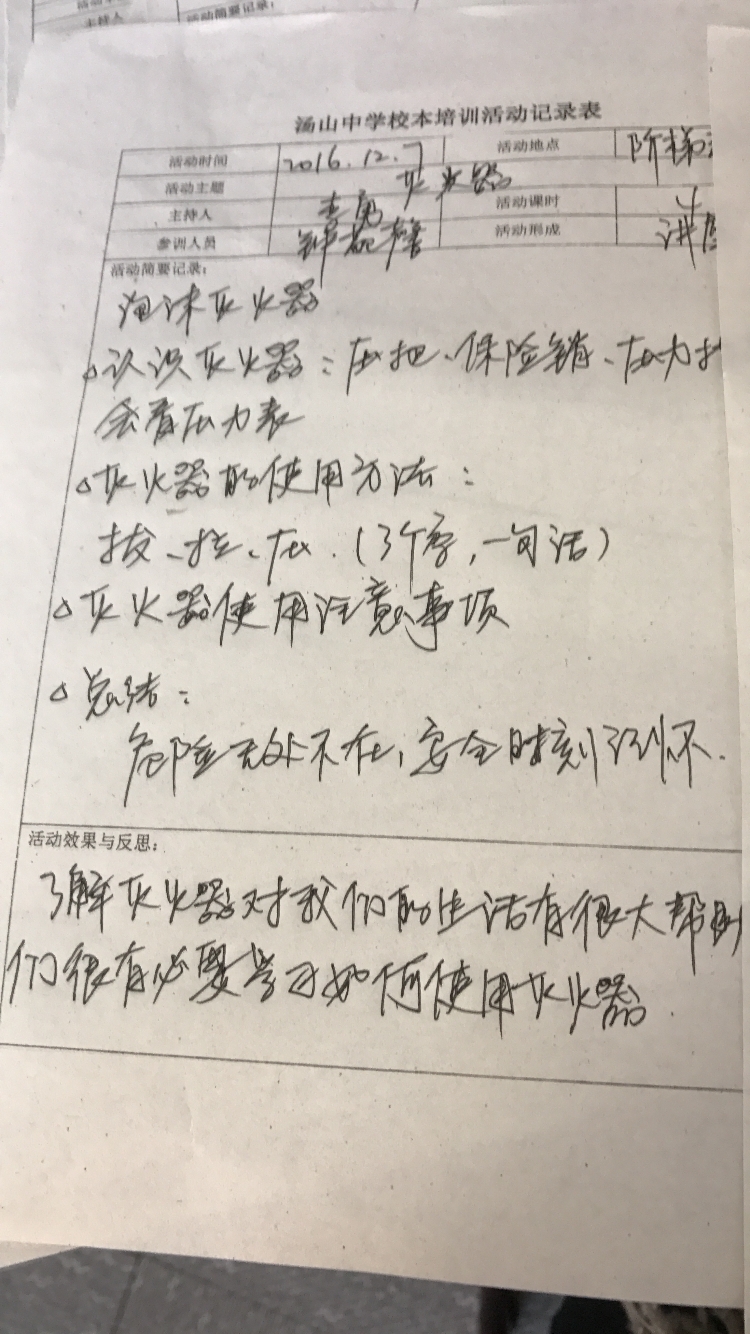 主持人
活动简要记录：
汤山中学校本培训活动记录表
活动时间 2016.12.7 活动地点 阶梯
活动主题 灭火器
主持人 李勇 活动课时 4
参训人员 活动形成 讲
活动简要记录：
泡沫灭火器
△认识灭火器：压把、保险销、压力
会看压力表
△灭火器的使用方法：
拔、拉、压.（3个字，一句话）
△灭火器使用注意事项
△总结：
危险无处不在，安全时刻记心怀.
活动效果与反思：
了解灭火器对我们的生活有很大帮
们很有必要学习如何使用灭火器.